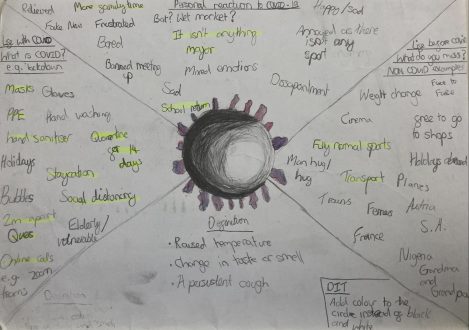 Personal reaction to COVID-19
Relieved
More family time
Bat? Wet market?
Happy/Sad
Fake News
Frustrated
It isn't anything
major
Annoyed as there
isn't any
sport
Bored
Banned meeting
up
Mixed emotions
Dissapointment
Sad
School return
Life with COVID
What is COVID?
e.g. lockdown
Masks
Gloves
PPE
Hand washing
hand sanitiser
Quarantine
for 14
days
Holidays
Staycation
Bubbles
Social distancing
2m apart
Elderly/
vulnerable
Ques
Online calls
e.g. zoom
teams
Life before covid
What do you miss?
NON COVID examples
Face to
Face
Weight change
Cinema
free to go
to shops
Fully normal sports
Man hug/
hug
Holidays abroad
Transport
Planes
Trains
Ferries
Austria
France
S.A.
Nigeria
Grandma
and
Grandpa
Definition
• Raised temperature
• Change in taste or smell
• A persistent cough
Definition
DIT
Add colour to the
circle instead of black
and white